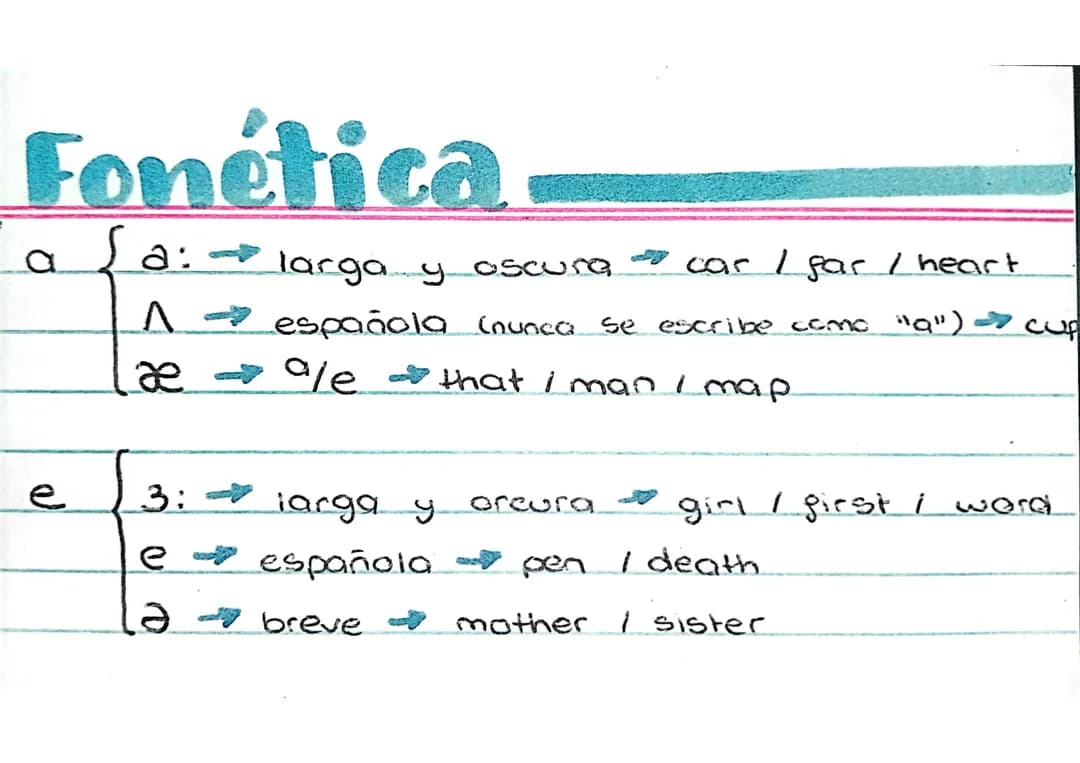 Fonética
a { a: → larga y oscura → car / far / heart
ʌ → española (nunca se escribe como "a") → cup
æ → a/e → that / man / map
e { 3: → larga y orcura → girl / first / word
e → española → pen / death
ə → breve → mother / sister